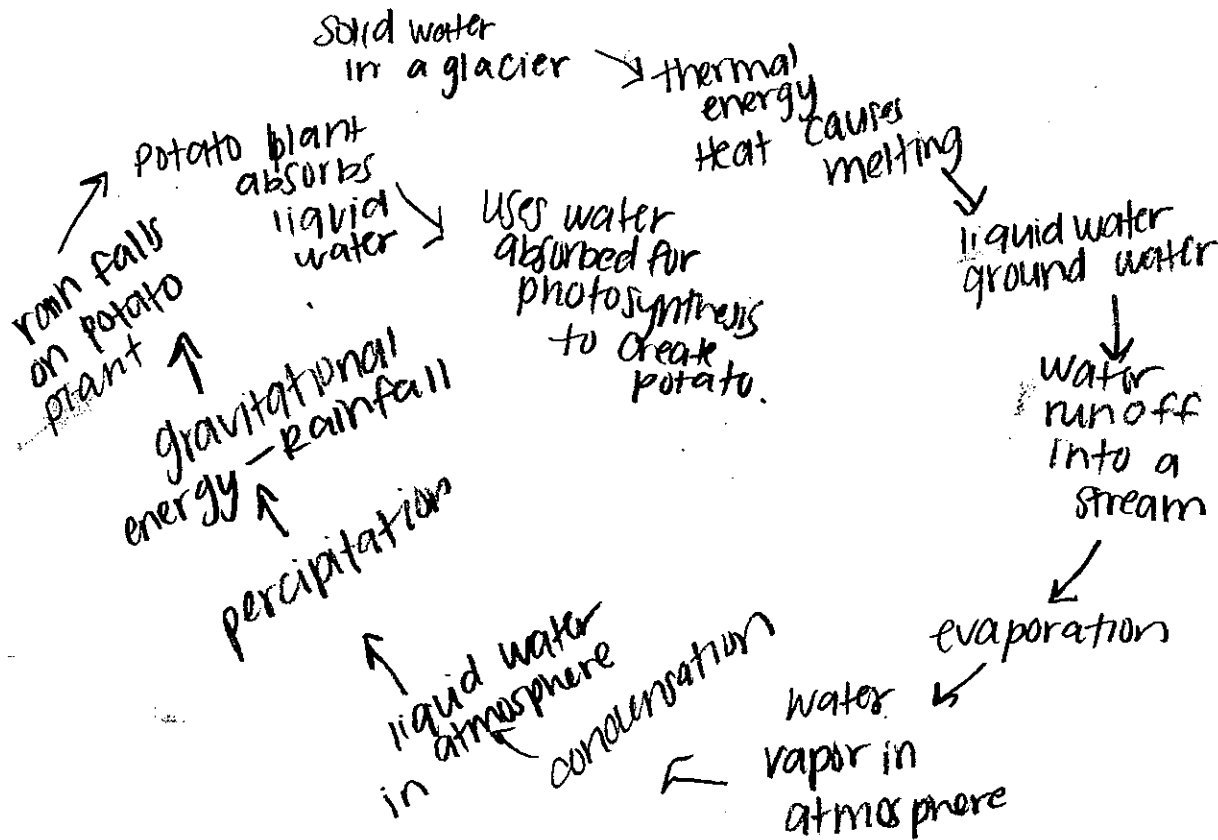 solid water
in a glacier
thermal
energy
Heat causes
melting
liquid water
ground water
water
runoff
into a
stream
evaporation
water
vapor in
atmosphere
condensation
liquid water
in atmosphere
percipitation
gravitational
energy - Rainfall
rain falls
on potato
plant
potato plant
absorbs
liquid
water
uses water
absorbed for
photosynthesis
to create
potato.